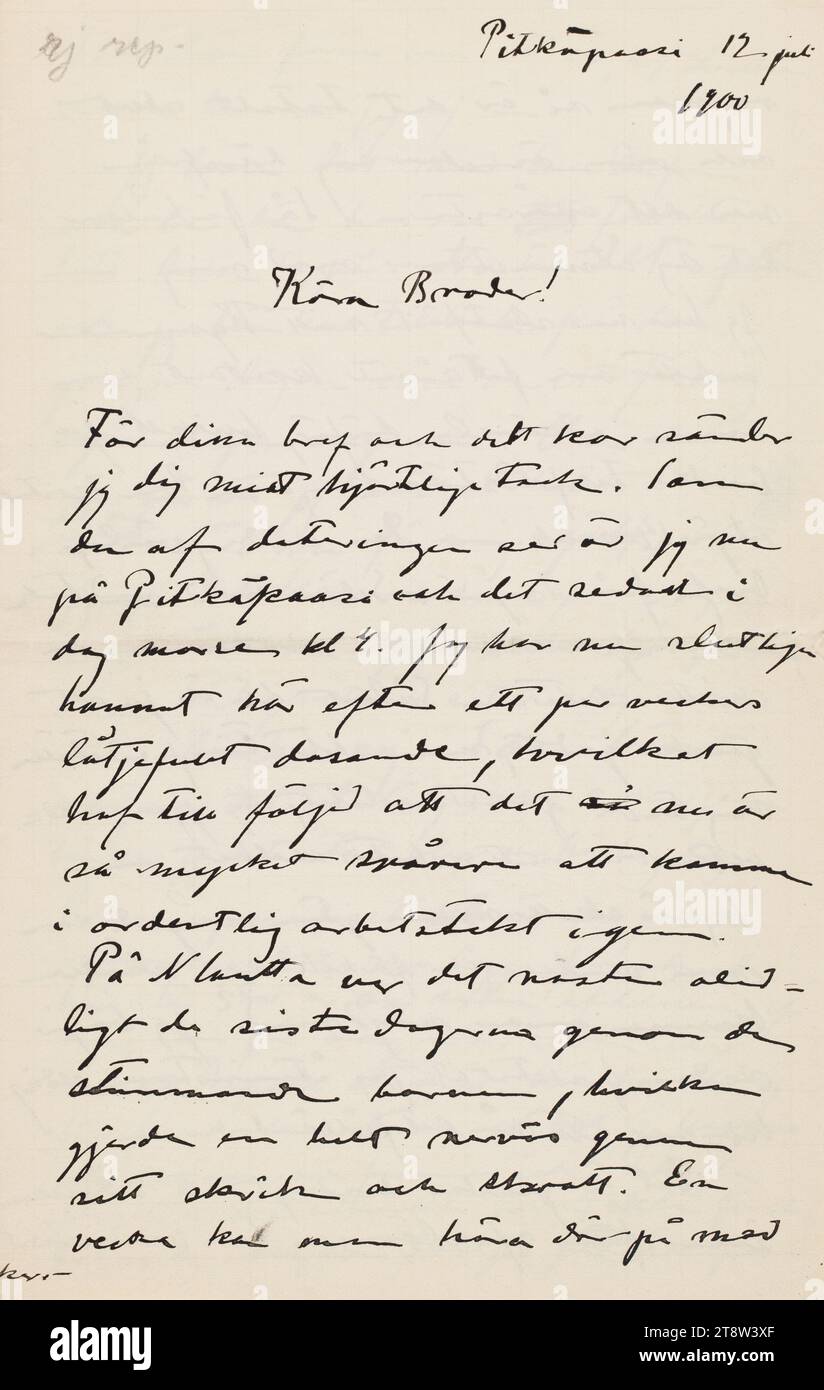 ej rep.
Pitkäpaasi 12 juli
1900
Kära Broder!
För dina bref och ditt kor sänder
jg dig mitt hjärtliga tack. Som
du af dateringen ser är jg nu
på Pitkäpaasi och det sedan i
dag morse kl 4. Jg har nu slutligen
hamnat här efter ett par veckors
låtjefullt dasande, hvilket
haf till följd att det så nu är
så mycket svårare att komma
i ordentlig arbetstakt igen.
På Nlautta var det nästan olid-
ligt de sista dagarna genom de
stimmande barnen, hvilka
gjorde en helt nervös genom
sitt skrik och skratt. En
vecka kan man höra där på med
alamy
Image ID: 2T8W3XF
www.alamy.com